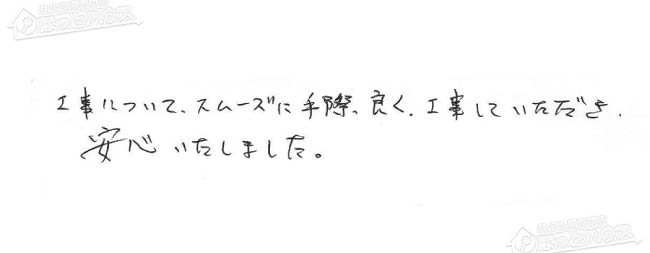 工事について、スムーズに手際、良く、工事していただき、
安心いたしました。